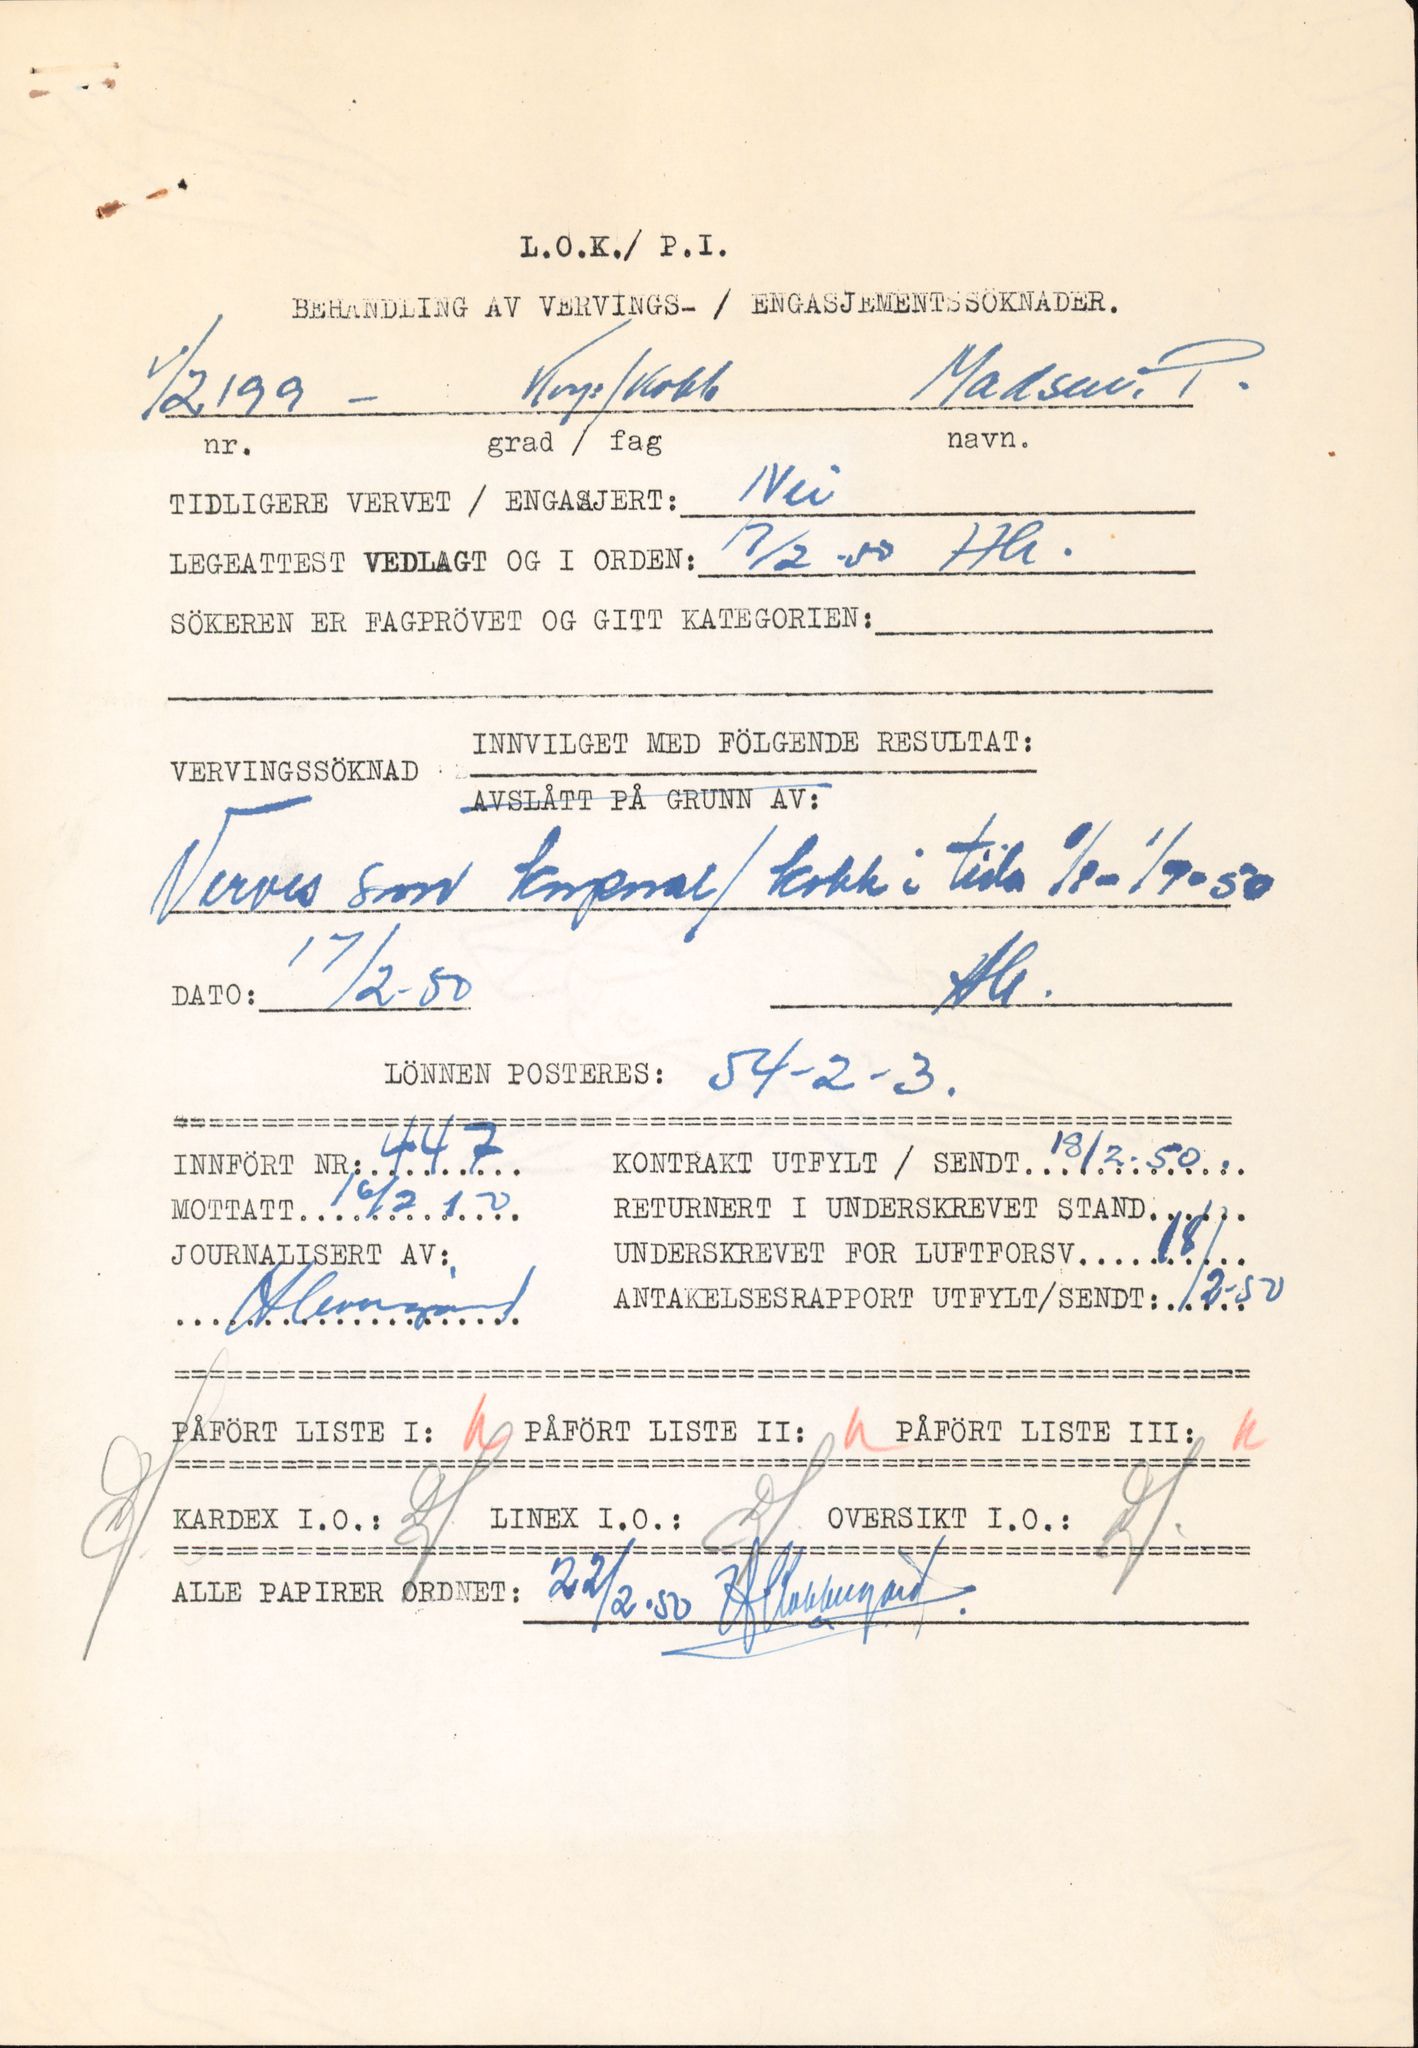 L.O.K./ P.I.
BEHANDLING AV VERVINGS- / ENGASJEMENTSSÖKNADER.
2199 - Korp:/kokk Madsen. P.
nr. grad / fag navn.
TIDLIGERE VERVET / ENGASJERT: Nei
LEGEATTEST VEDLAGT OG I ORDEN: 17/2-50 HG.
SÖKEREN ER FAGPRÖVET OG GITT KATEGORIEN:
INNVILGET MED FÖLGENDE RESULTAT:
VERVINGSSÖKNAD
AVSLÅTT PÅ GRUNN AV:
Verves som korporal/kokk i tida 1/9-50
DATO: 17/2-50 HG.
LÖNNEN POSTERES: 54-2-3.
INNFÖRT NR: 447 KONTRAKT UTFYLT / SENDT 18/2-50
MOTTATT 16/2 RETURNERT I UNDERSKREVET STAND
JOURNALISERT AV: UNDERSKREVET FOR LUFTFORSV. 18/
ANTAKELSESRAPPORT UTFYLT/SENDT: 2-50
PÅFÖRT LISTE I: PÅFÖRT LISTE II: PÅFÖRT LISTE III:
KARDEX I.O.: LINEX I.O.: OVERSIKT I.O.:
ALLE PAPIRER ORDNET: 22/2-50